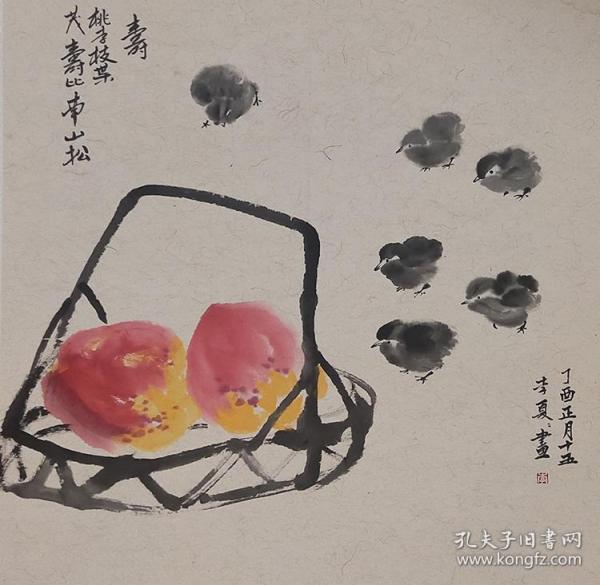 壽
桃李枝葉
茂壽比南山松
丁酉正月十五
李夏夏畫
孔夫子旧书网
www.kongfz.com